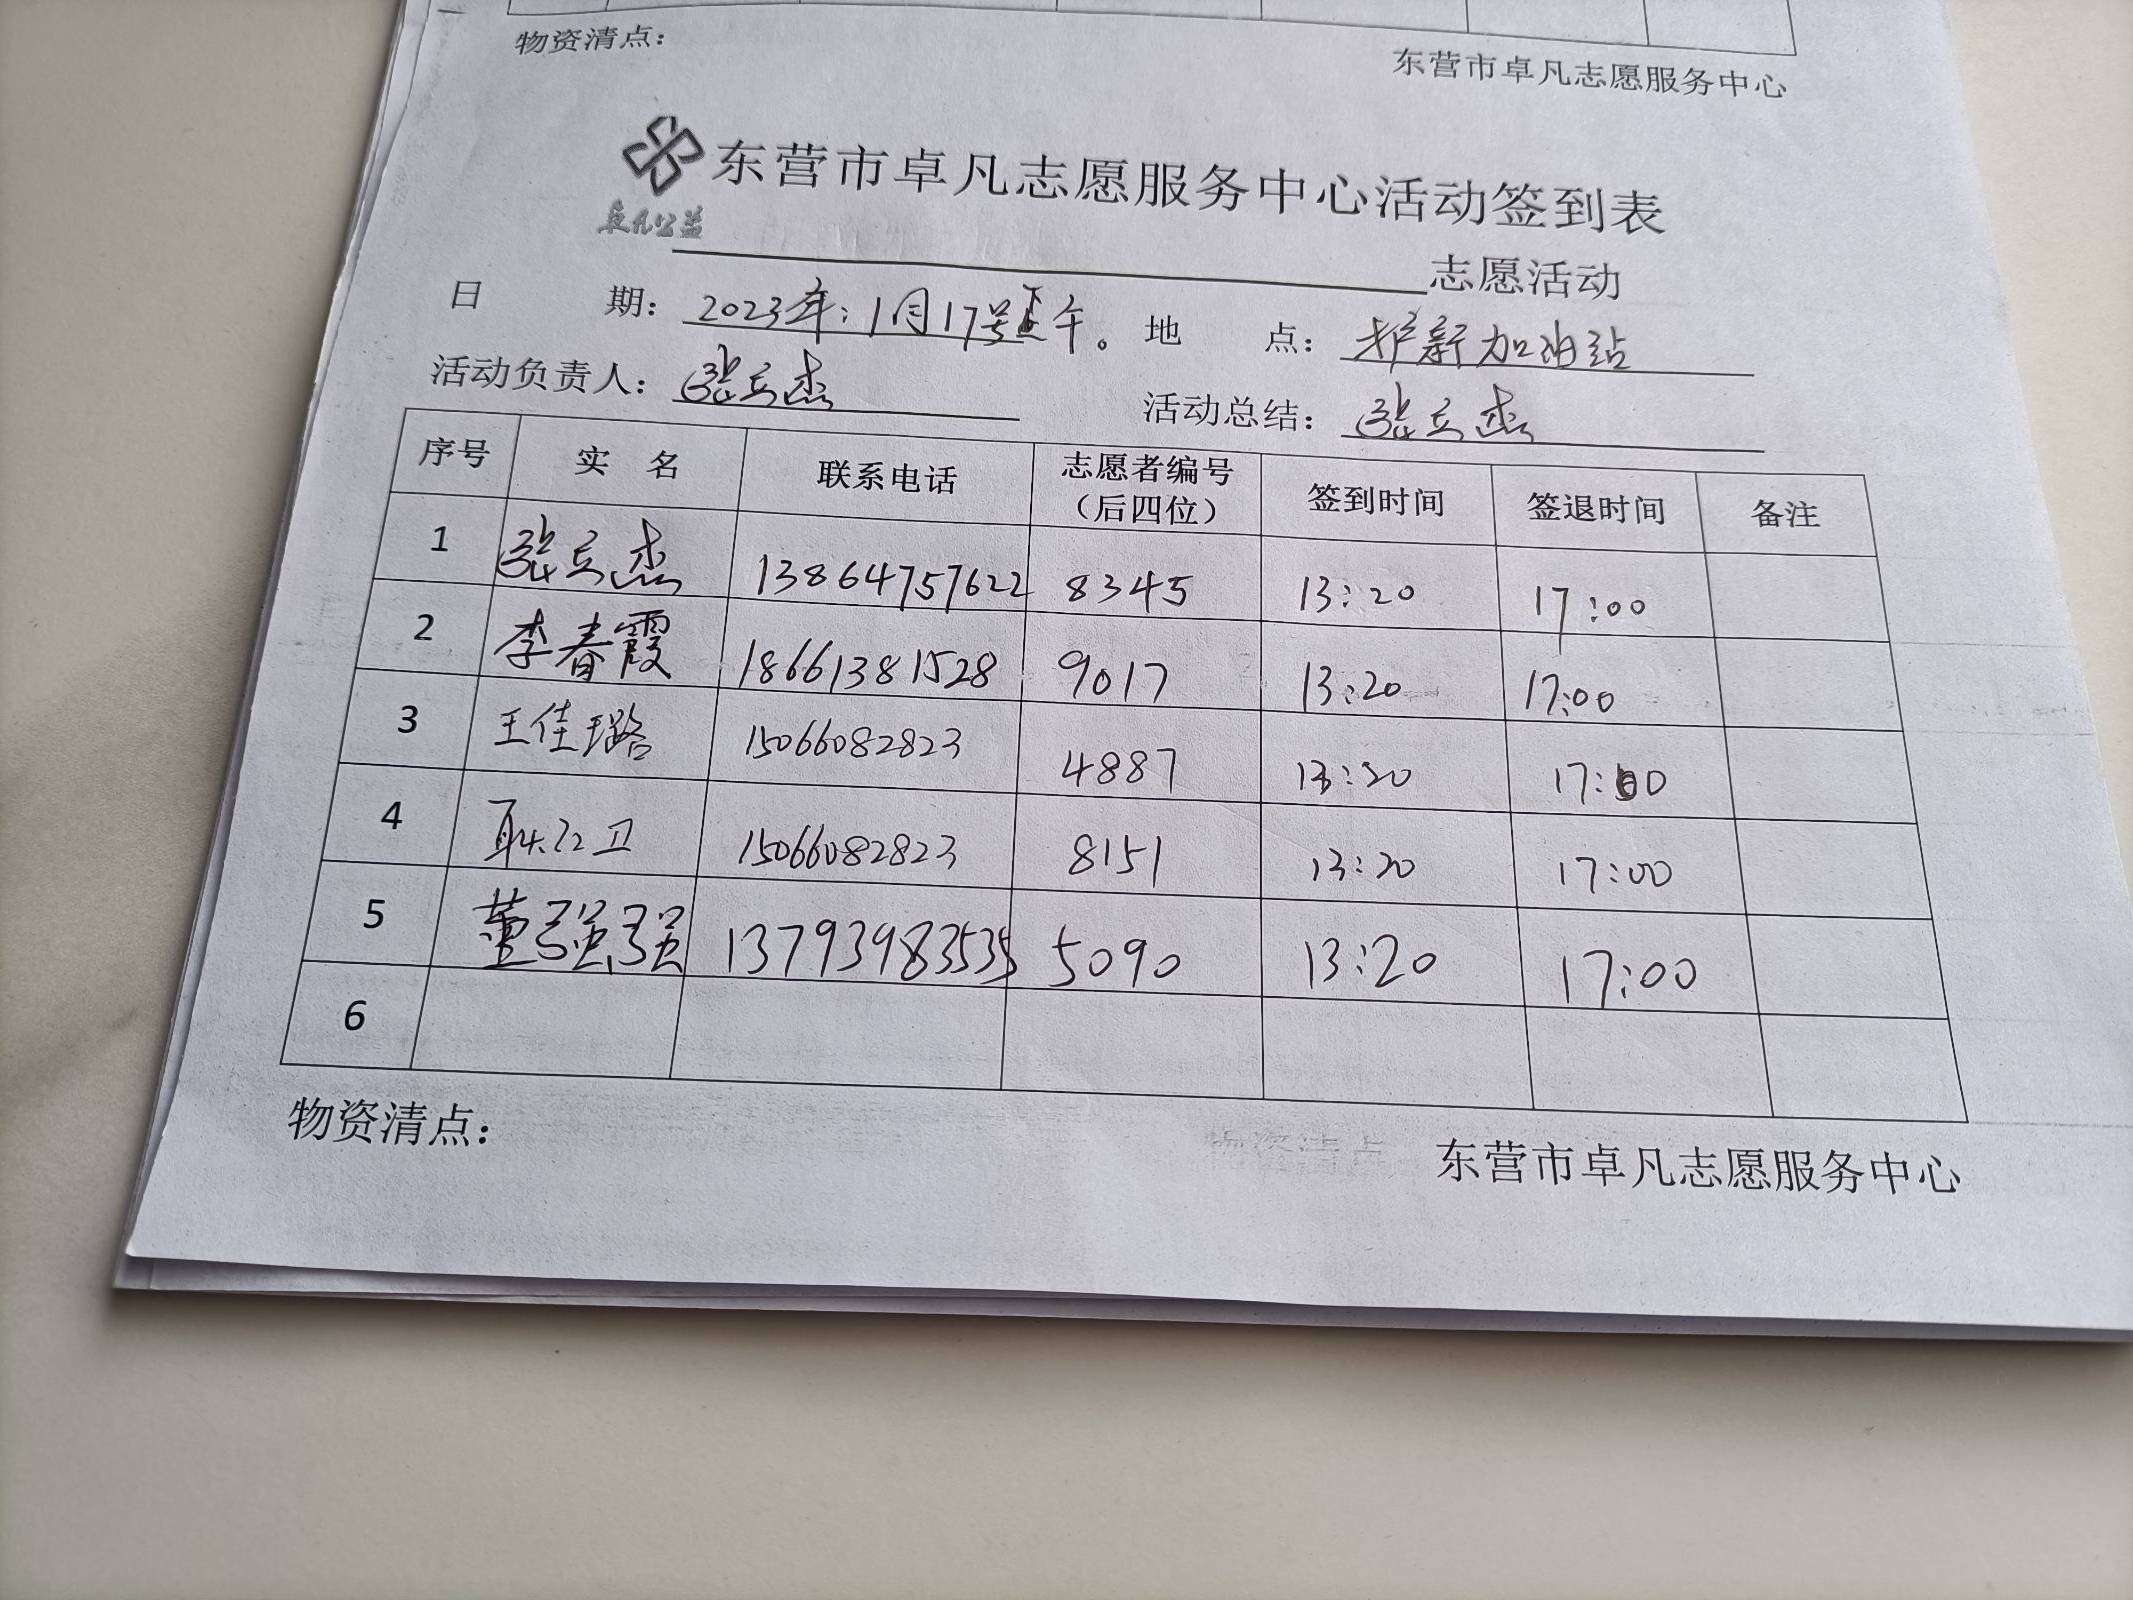 物资清点：
东营市卓凡志愿服务中心
东营市卓凡志愿服务中心活动签到表
卓凡公益
志愿活动
日 期：2023年：1月17号下午。 地 点：新加油站
活动负责人：张立杰 活动总结：张立杰
序号 实 名 联系电话 志愿者编号（后四位） 签到时间 签退时间 备注
1 张立杰 13864757622 8345 13:20 17:00
2 李春霞 18661381528 9017 13:20 17:00
3 王佳璐 15066082823 4887 13:20 17:00
4 耿红卫 15066082823 8151 13:20 17:00
5 董强强 13793983535 5090 13:20 17:00
6
物资清点：
东营市卓凡志愿服务中心